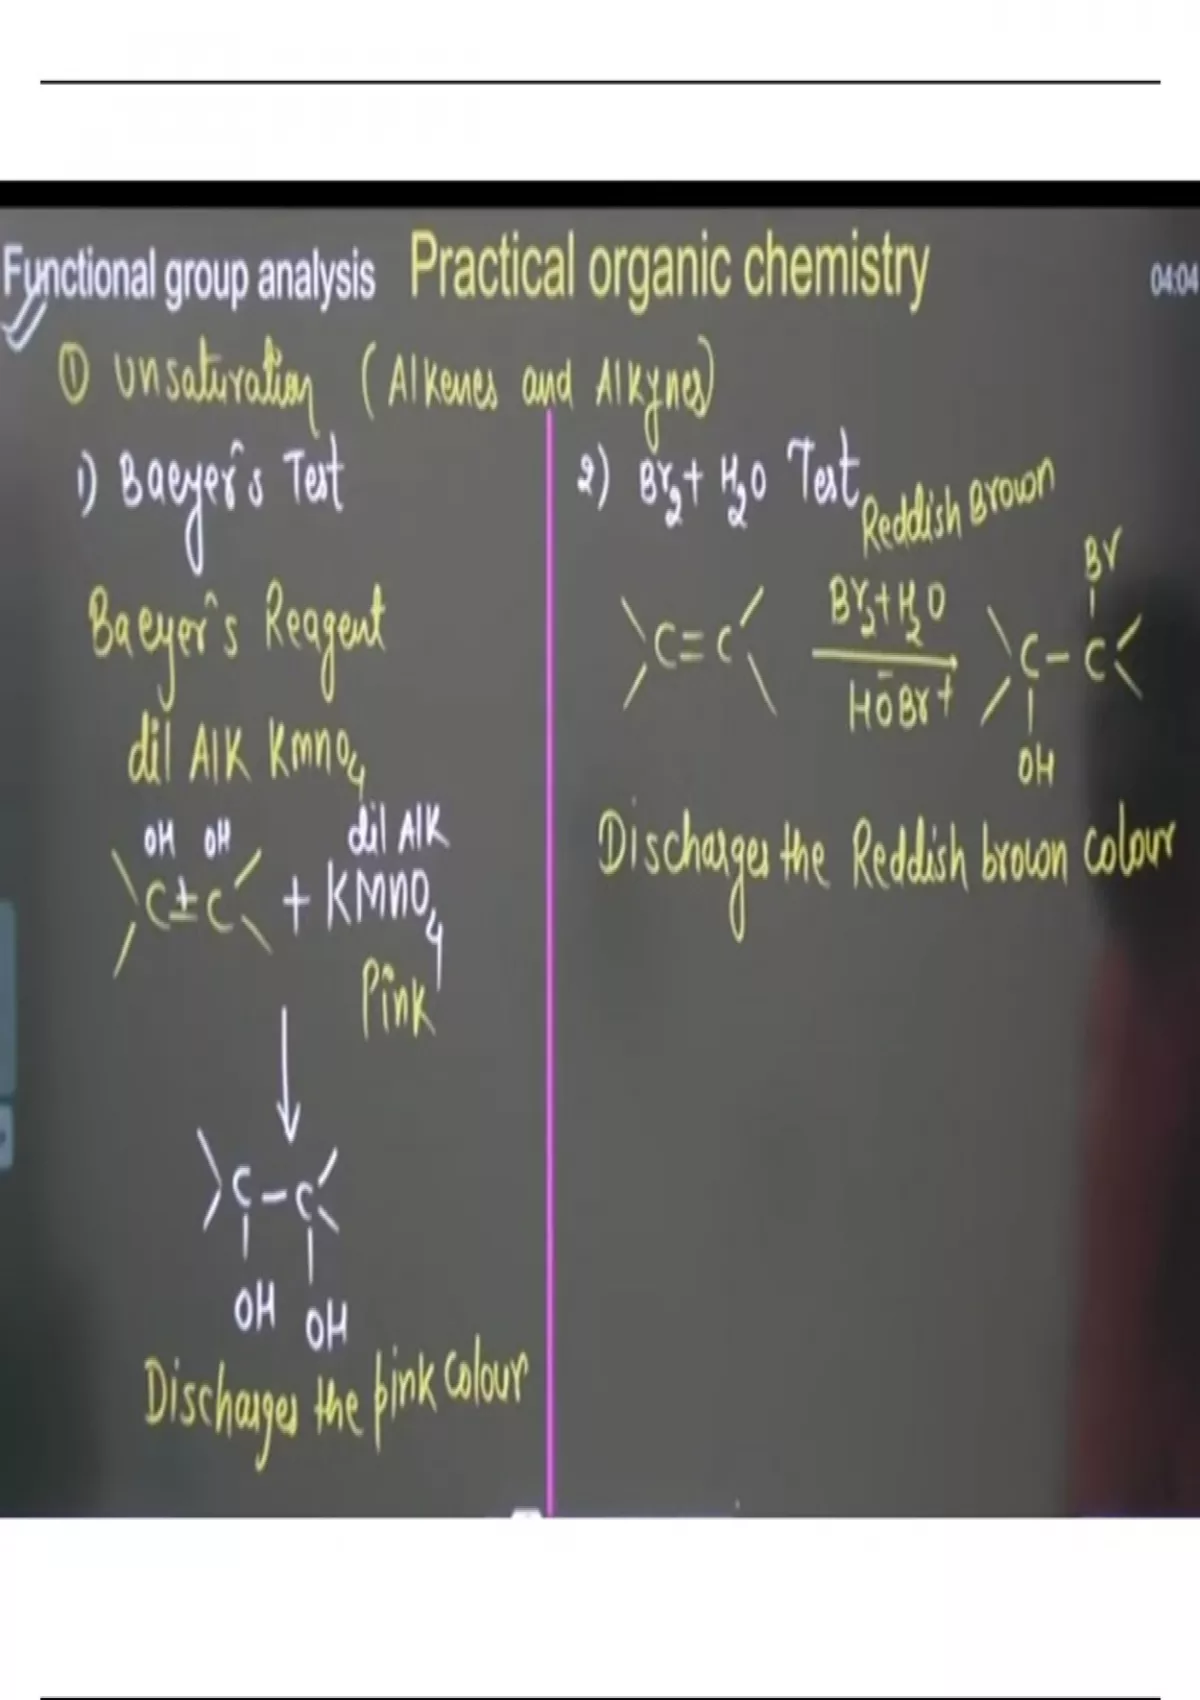 Functional group analysis Practical organic chemistry 04:04
① Unsaturation (Alkenes and Alkynes)
1) Baeyer's Test
Baeyer's Reagent
dil Alk KmnO4
OH OH dil Alk
C=C + KMNO4
Pink
C-C
OH OH
Discharges the pink colour
2) Br2+ H2O Test
Reddish Brown
Br
C=C Br2+H2O C-C
HO⁻Br⁺
OH
Discharges the Reddish brown colour